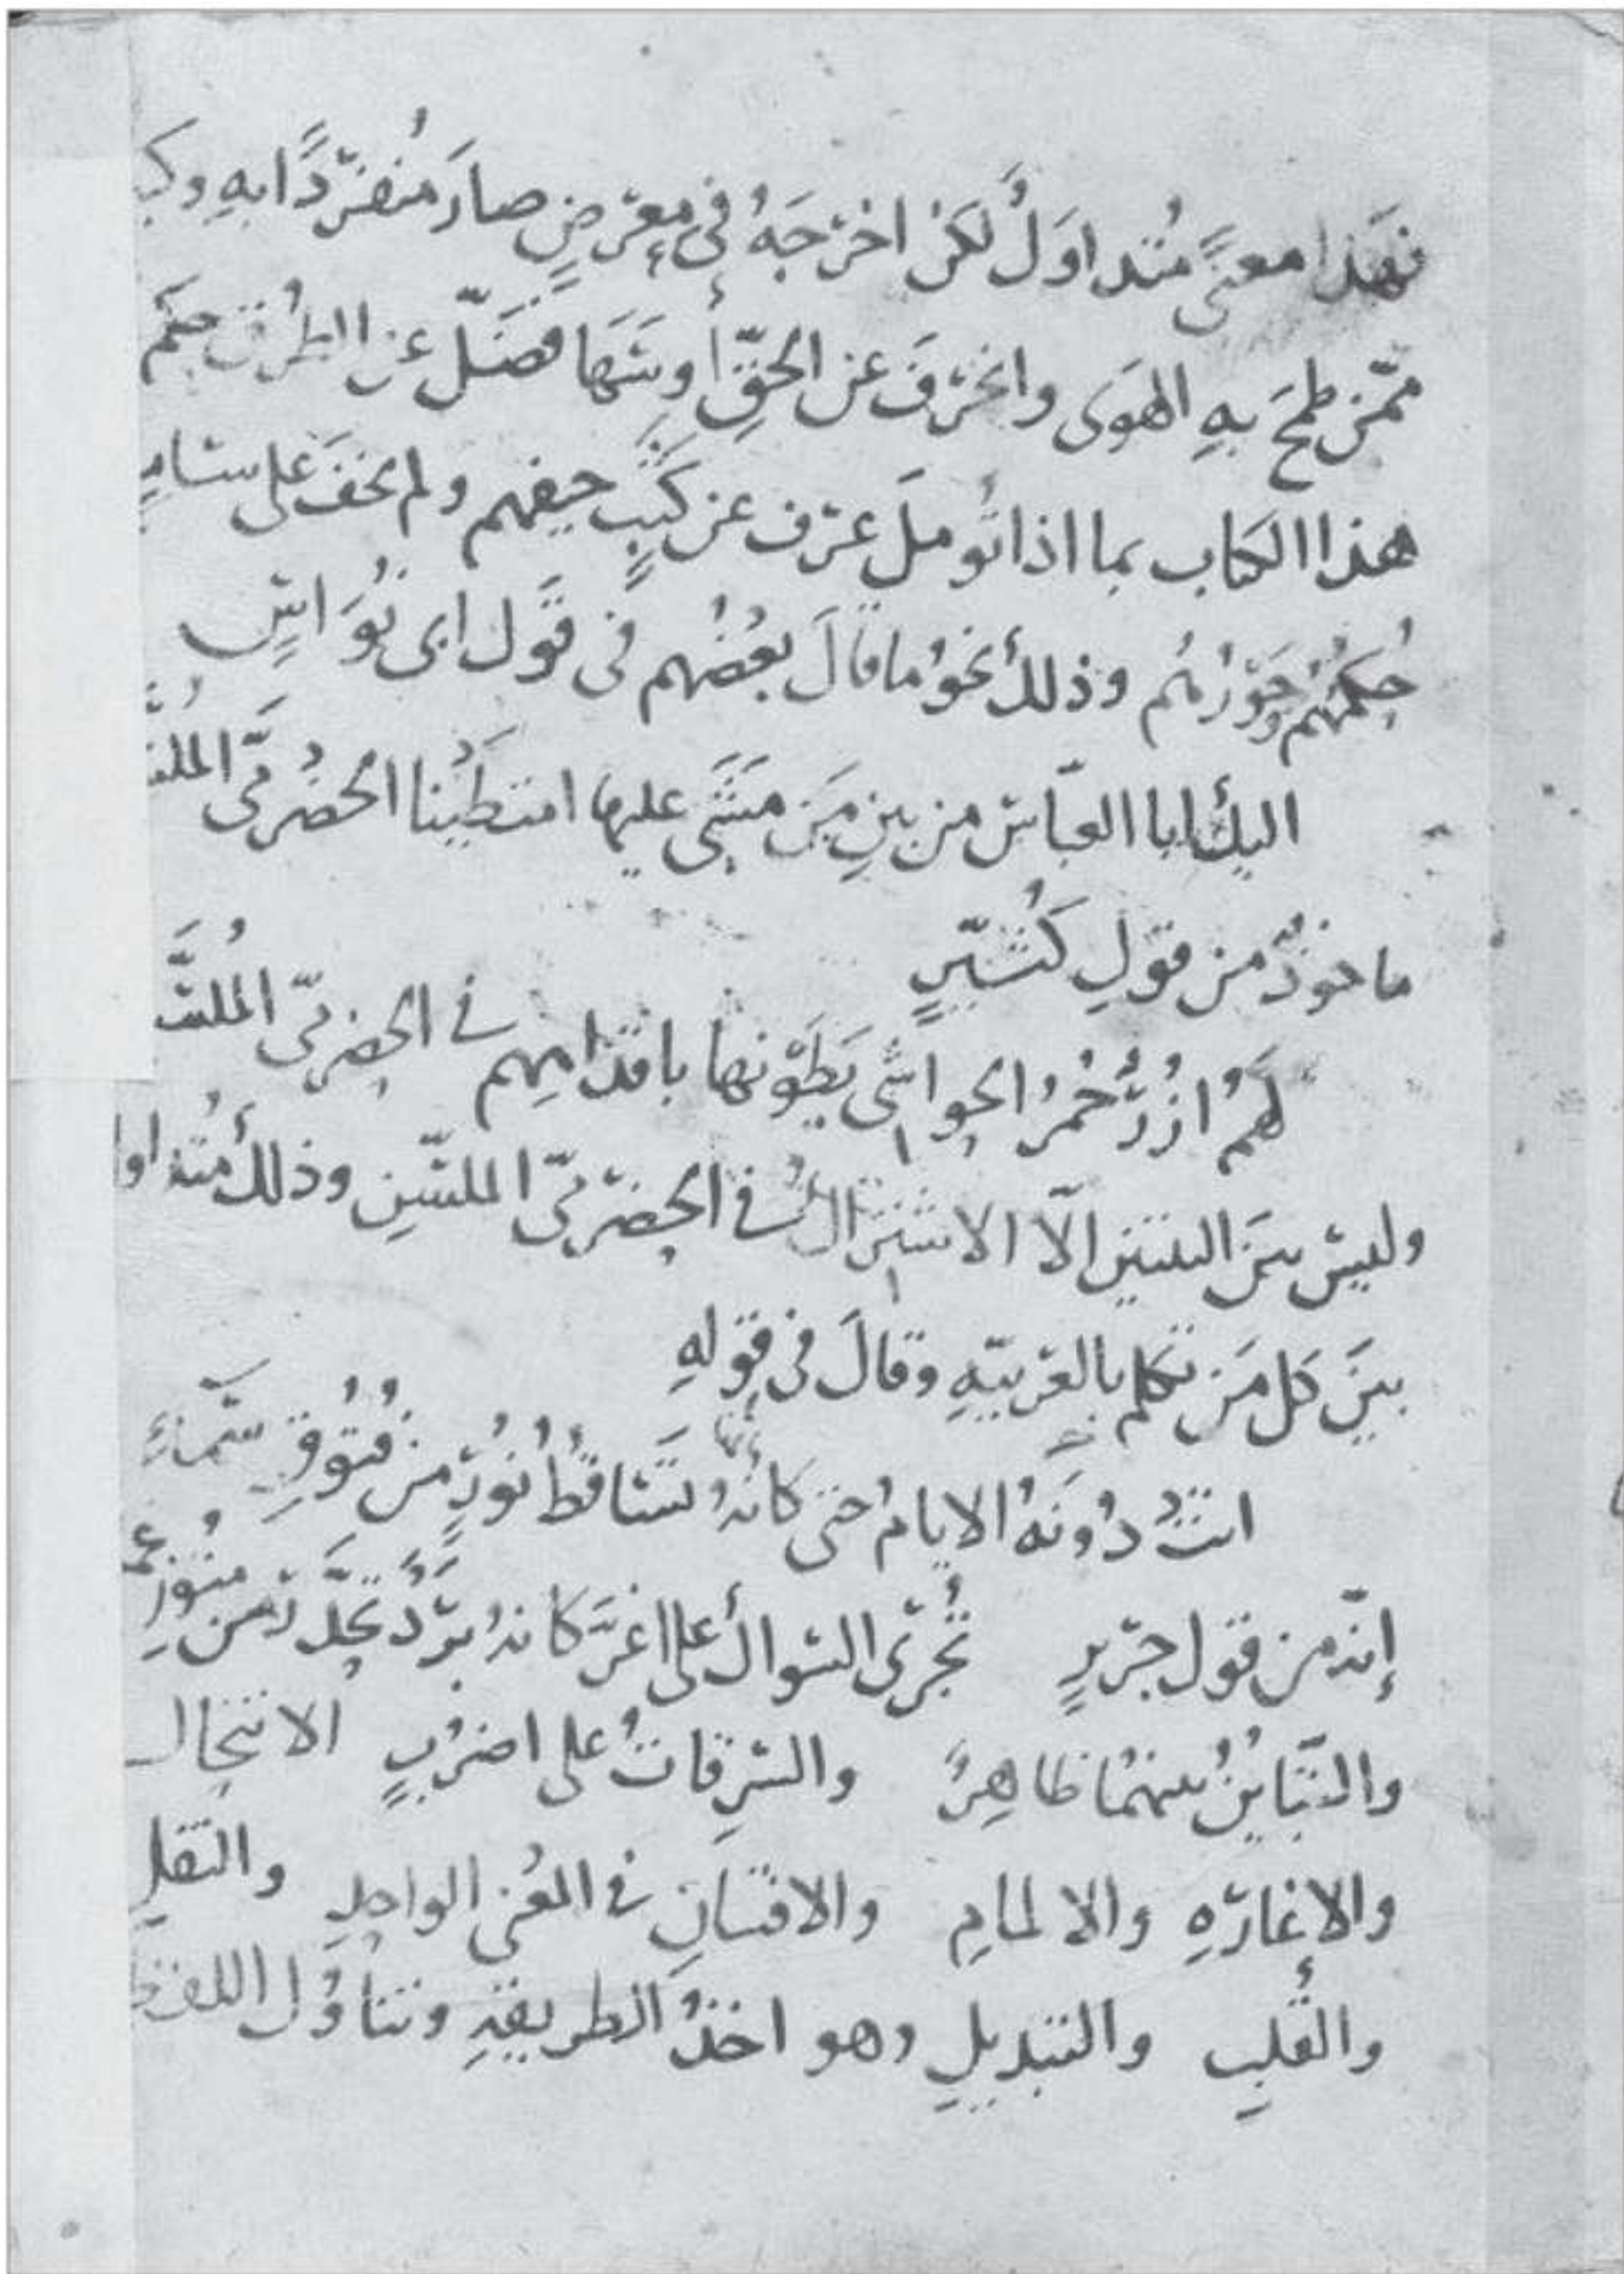 فهذا معنًى مُتداوَلٌ لكن اخرَجَهُ في مِعرَضٍ صارَ مُنفَرِدًا بهِ
ممّن طمحَ بهِ الهَوَى وانحرَفَ عن الحقِّ أو سَهَا فضَلَّ عن الطُرق حكَم
هذا الكتاب بما اذا تُومِلَ عرف عن كَثَبٍ حيفهم ولم يخفَ على
حُكمُهُم وجَوْرُهُم وذلك نحوُ ما قالَ بعضُهم في قَول ابى نُوَاسٍ
اليك ابا العبّاس من بينِ مَن مَشَى عليها امتطَيْنا الحضْرَمىَّ
ماخوذٌ من قولِ كُثَيِّرٍ
لَهُم اُزُرٌ حُمْرُ الحواشى يَطَوْنها باقدامِهم في الحضرمىّ
وليس بينَ البيتين الّا الاشتراكُ في الحضرَمىّ الملسّنِ وذلك
بينَ كل مَن تكلم بالعربيّهِ وقالَ في قولهِ
اتت دُونَهُ الايامُ حتى كانهُ تَسَاقُطُ نُورٍ من فُتُوقِ سَمَاءِ
إنّه من قول جريرٍ تُجْرِى السواكَ على اغرَّ كانهُ بَرَدٌ تحَدَّرَ من مُتُونِ
والتّبايُنُ بينهُما ظاهِرٌ والسرِقاتُ على اضرُبٍ الانتحال
والاغارَهِ والالمامِ والافتنانِ في المعْنى الواحِدِ والنقلِ
والقَلبِ والتبديلِ وهو اخذُ الطريقهِ وتناوُل اللفظ